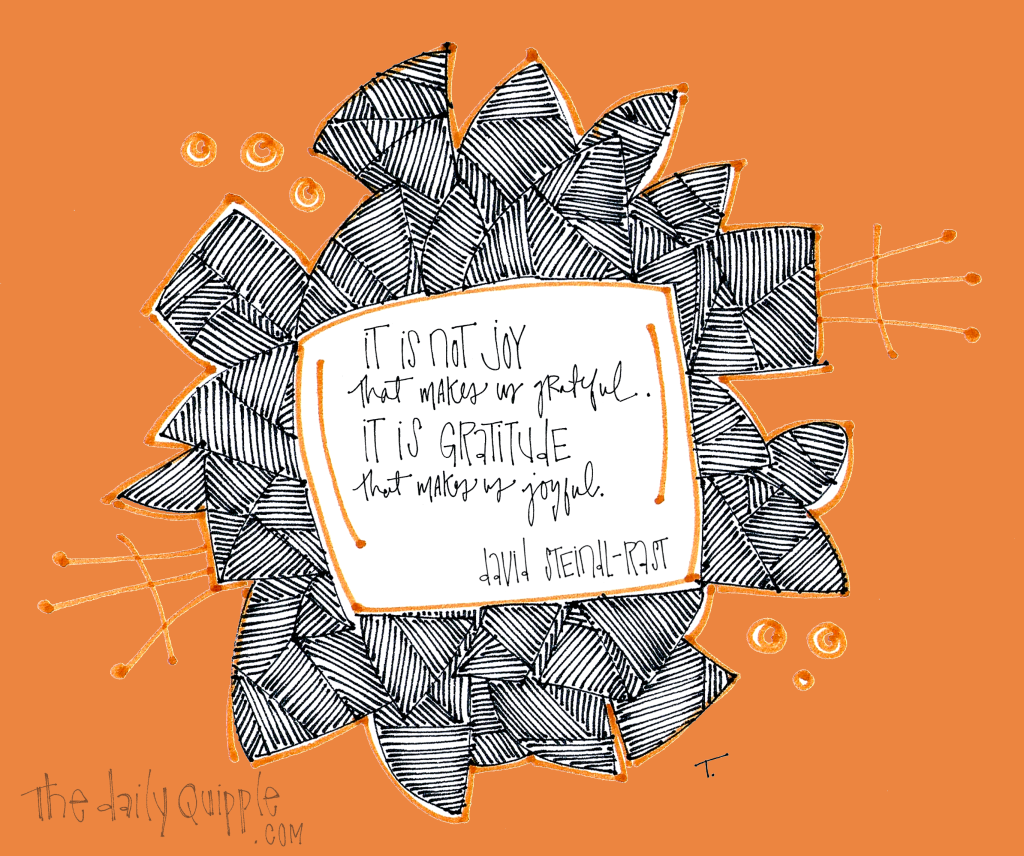 iT is noT joy
that makes us grateful..
iT is GRatiTude
that makes us joyful.
david STeindl-RasT
T.
The daily Quipple
.com